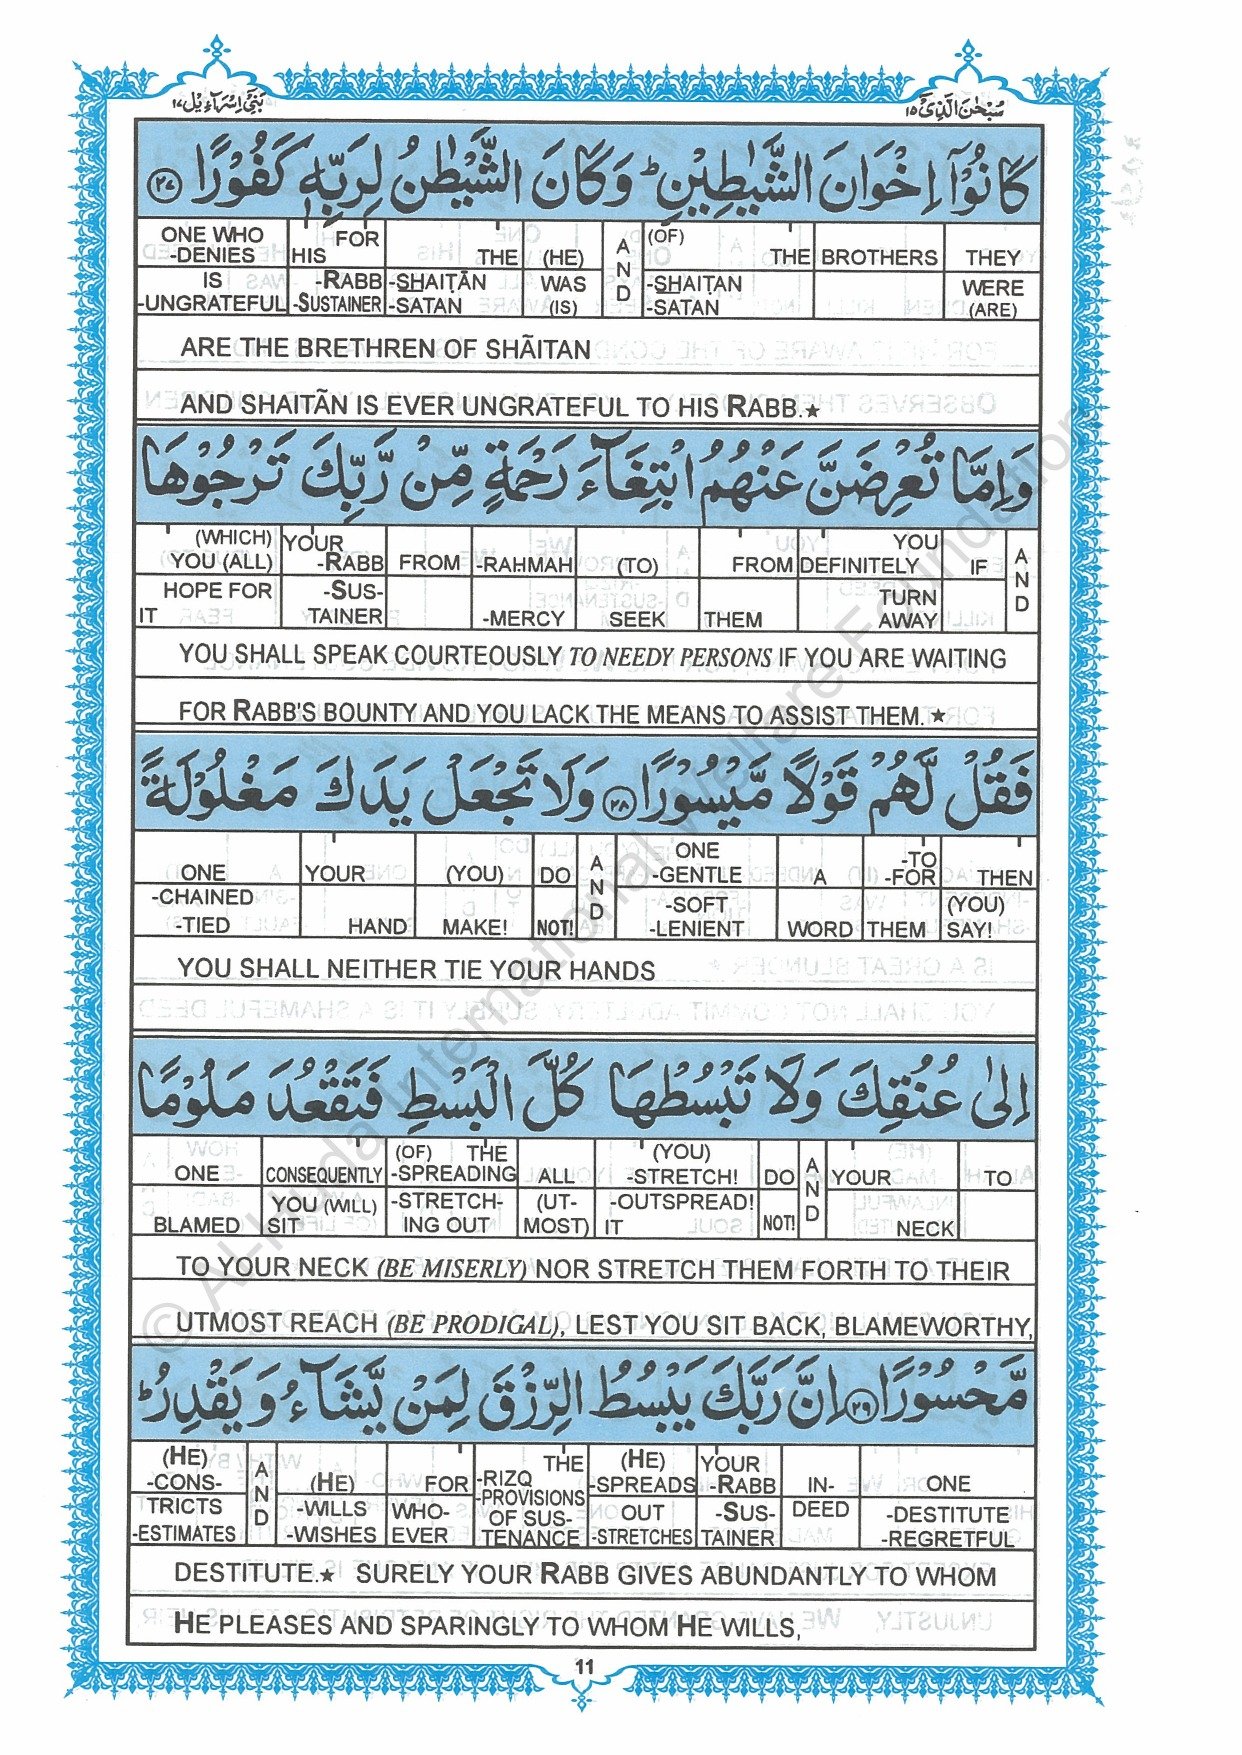 بَنِیْٓ اِسْرَآءِیْل ١٧ سُبْحٰنَ الَّذِیْٓ ١٥
كَانُوْٓا اِخْوَانَ الشَّيٰطِيْنِ ؕ وَكَانَ الشَّيْطٰنُ لِرَبِّهٖ كَفُوْرًا ﴿٢٧﴾
ONE WHO -DENIES IS -UNGRATEFUL | FOR HIS -RABB -SUSTAINER | THE -SHAIṬĀN -SATAN | (HE) WAS (IS) | AND | (OF) THE -SHAIṬAN -SATAN | BROTHERS | THEY WERE (ARE)
ARE THE BRETHREN OF SHÃITAN
AND SHAITÃN IS EVER UNGRATEFUL TO HIS RABB.★
وَاِمَّا تُعْرِضَنَّ عَنْهُمُ ابْتِغَآءَ رَحْمَةٍ مِّنْ رَّبِّكَ تَرْجُوْهَا
(WHICH) YOU (ALL) HOPE FOR IT | YOUR -RABB -SUSTAINER | FROM | -RAHMAH -MERCY | (TO) SEEK | FROM THEM | YOU DEFINITELY TURN AWAY | IF | AND
YOU SHALL SPEAK COURTEOUSLY TO NEEDY PERSONS IF YOU ARE WAITING
FOR RABB'S BOUNTY AND YOU LACK THE MEANS TO ASSIST THEM.★
فَقُلْ لَّهُمْ قَوْلًا مَّيْسُوْرًا ﴿٢٨﴾ وَلَا تَجْعَلْ يَدَكَ مَغْلُوْلَةً
ONE -CHAINED -TIED | YOUR HAND | (YOU) MAKE! | DO NOT! | AND | ONE -GENTLE -SOFT -LENIENT | A WORD | -TO -FOR THEM | THEN (YOU) SAY!
YOU SHALL NEITHER TIE YOUR HANDS
اِلٰى عُنُقِكَ وَلَا تَبْسُطْهَا كُلَّ الْبَسْطِ فَتَقْعُدَ مَلُوْمًا
ONE BLAMED | CONSEQUENTLY YOU (WILL) SIT | (OF) THE -SPREADING -STRETCH- ING OUT | ALL (UT- MOST) | (YOU) -STRETCH! -OUTSPREAD! IT | DO NOT! | AND | YOUR NECK | TO
TO YOUR NECK (BE MISERLY) NOR STRETCH THEM FORTH TO THEIR
UTMOST REACH (BE PRODIGAL), LEST YOU SIT BACK, BLAMEWORTHY,
مَّحْسُوْرًا ﴿٢٩﴾ اِنَّ رَبَّكَ يَبْسُطُ الرِّزْقَ لِمَنْ يَّشَآءُ وَيَقْدِرُ ؕ
(HE) -CONS- TRICTS -ESTIMATES | AND | (HE) -WILLS -WISHES | FOR WHO- EVER | THE -RIZQ -PROVISIONS OF SUS- TENANCE | (HE) -SPREADS OUT -STRETCHES | YOUR -RABB -SUS- TAINER | IN- DEED | ONE -DESTITUTE -REGRETFUL
DESTITUTE.★ SURELY YOUR RABB GIVES ABUNDANTLY TO WHOM
HE PLEASES AND SPARINGLY TO WHOM HE WILLS,
11
© Al-Huda International Welfare Foundation